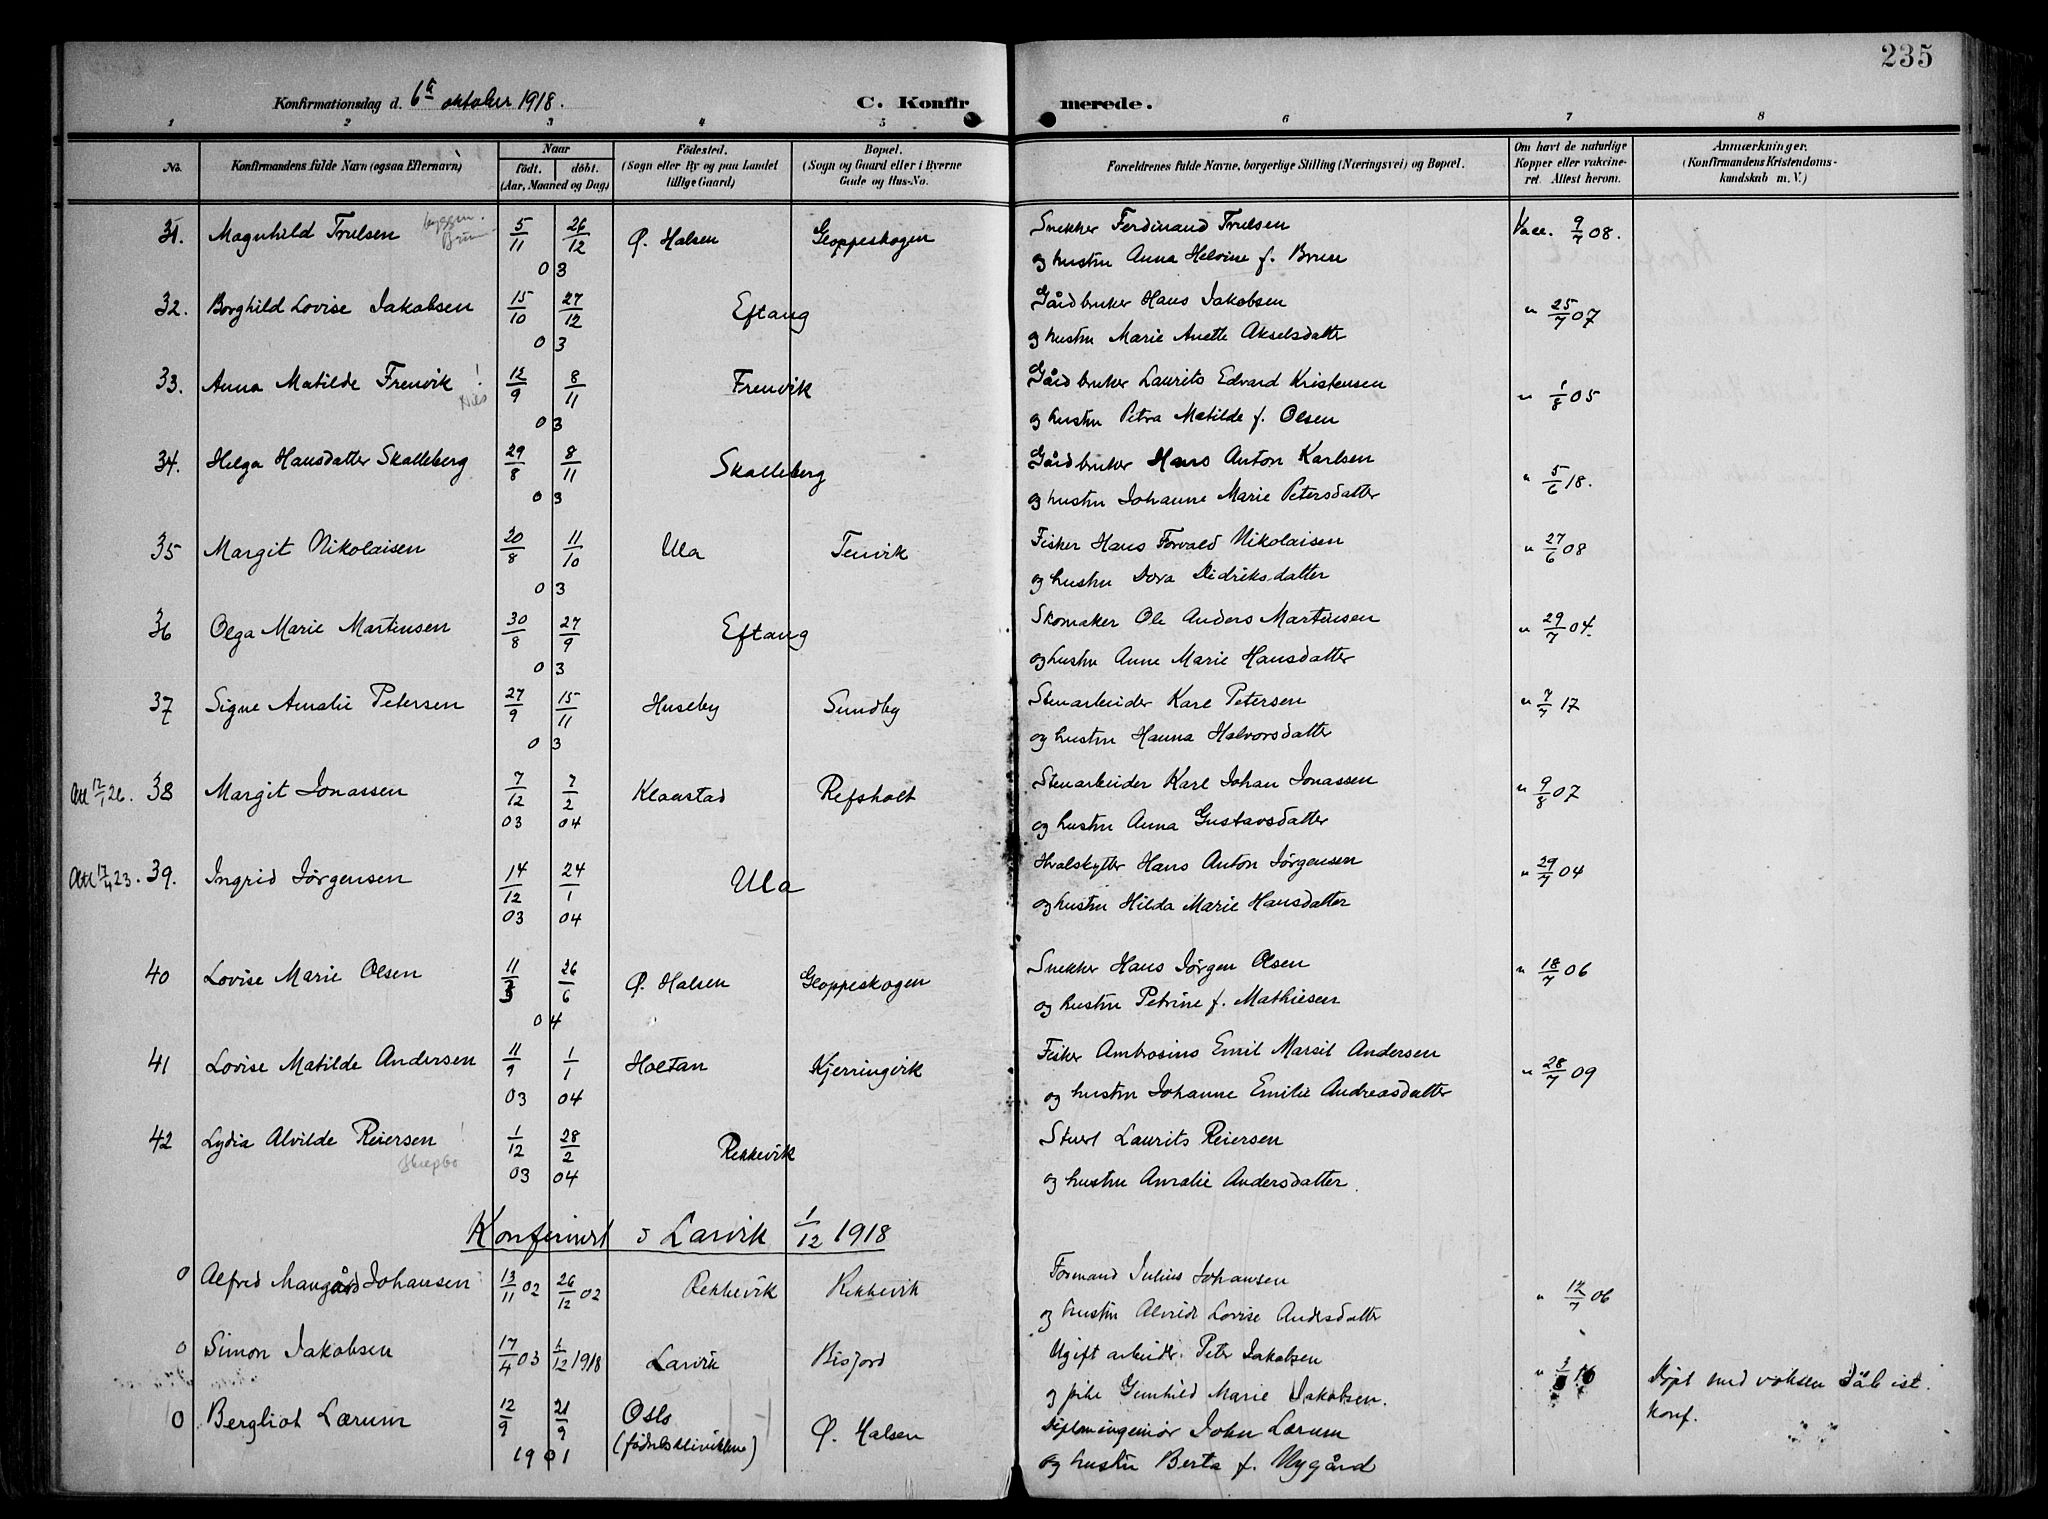 235
Konfirmationsdag d. 6te oktober 1918.
C. Konfirmerede.
1 2 3 4 5 6 7 8
No. Konfirmandens fulde Navn (ogsaa Efternavn) Naar födt. döbt. (Aar, Maaned og Dag) Födested. (Sogn eller By og paa Landet tillige Gaard) Bopæl. (Sogn og Gaard eller i Byerne Gade og Hus-No. Forældrenes fulde Navne, borgerlige Stilling (Næringsvei) og Bopæl. Om havt de naturlige Kopper eller vakcineret. Attest herom. Anmærkninger. (Konfirmandens Kristendomskundskab m. V.)
31. Magnhild Trulsen 5/11 26/12 03 Ø. Halsen Gloppeskogen Snekker Ferdinand Trulsen Vacc. 9/7 08.
og hustru Anna Helvine f. Brun
32. Borghild Lovise Jakobsen 15/10 27/12 03 Eftang Gårdbruker Hans Jakobsen " 25/7 07
og hustru Marie Anette Akselsdatter
33. Anna Matilde Frenvik ! 12/9 8/11 03 Frenvik Gårdbruker Laurits Edvard Kristensen " 1/8 05
og hustru Petra Matilde f. Olsen
34. Helga Hansdatter Skalleberg 29/8 8/11 03 Skalleberg Gårdbruker Hans Anton Karlsen " 5/6 18.
og hustru Johanne Marie Petersdatter
35 Margit Nikolaisen 20/8 11/10 03 Ula Tenvik Fisker Hans Torvald Nikolaisen " 27/6 08
og hustru Dora Didriksdatter
36 Olga Marie Martinsen 30/8 27/9 03 Eftang Skomaker Ole Anders Martinsen " 29/7 04.
og hustru Anne Marie Hansdatter
37 Signe Amalie Petersen 27/9 15/11 03 Huseby Sundby Stenarbeider Karl Petersen " 7/7 17
og hustru Hanna Halvorsdatter
Att 12/1 26. 38 Margit Jonassen 7/12 03 7/2 04 Klaastad Refsholt Stenarbeider Karl Johan Jonassen " 9/8 07
og hustru Anna Gustavsdatter
Att 17/4 23. 39. Ingrid Jørgensen 14/12 03 24/1 04 Ula Hvalskytter Hans Anton Jørgensen " 29/7 04
og hustru Hilda Marie Hansdatter
40 Lovise Marie Olsen 11 26/6 04 Ø. Halsen Gloppeskogen Snekker Hans Jørgen Olsen " 18/7 06
og hustru Petrine f. Mathiesen
41 Lovise Matilde Andersen 11/9 03 1/1 04 Holtan Kjerringvik Fisker Ambrosius Emil Marsil Andersen " 28/7 09
og hustru Johanne Emilie Andreasdatter
42 Lydia Alvilde Reiersen ! 1/12 03 28/2 04 Rekkevik Stuert Laurits Reiersen
og hustru Amalie Andersdatter.
Konfirmert i Larvik 1/12 1918
0 Alfred Mangård Johansen 13/11 02 26/12 02 Rekkevik Rekkevik Formand Julius Johansen " 12/7 06
og hustru Alvide Lovise Andersdatter
0 Simon Jakobsen 17/4 03 1/12 1918 Larvik Bisjord Ugift arbeider Peter Jakobsen " 16 Døpt med voksen dåb ist.
og pike Gunhild Marie Jakobsen. Konf.
0 Bergliot Lærum 12/9 21/9 1901 Oslo Ø. Halsen Diplomingeniør John Lærum
(fødselsklinikken) og hustru Berta f. Nygård